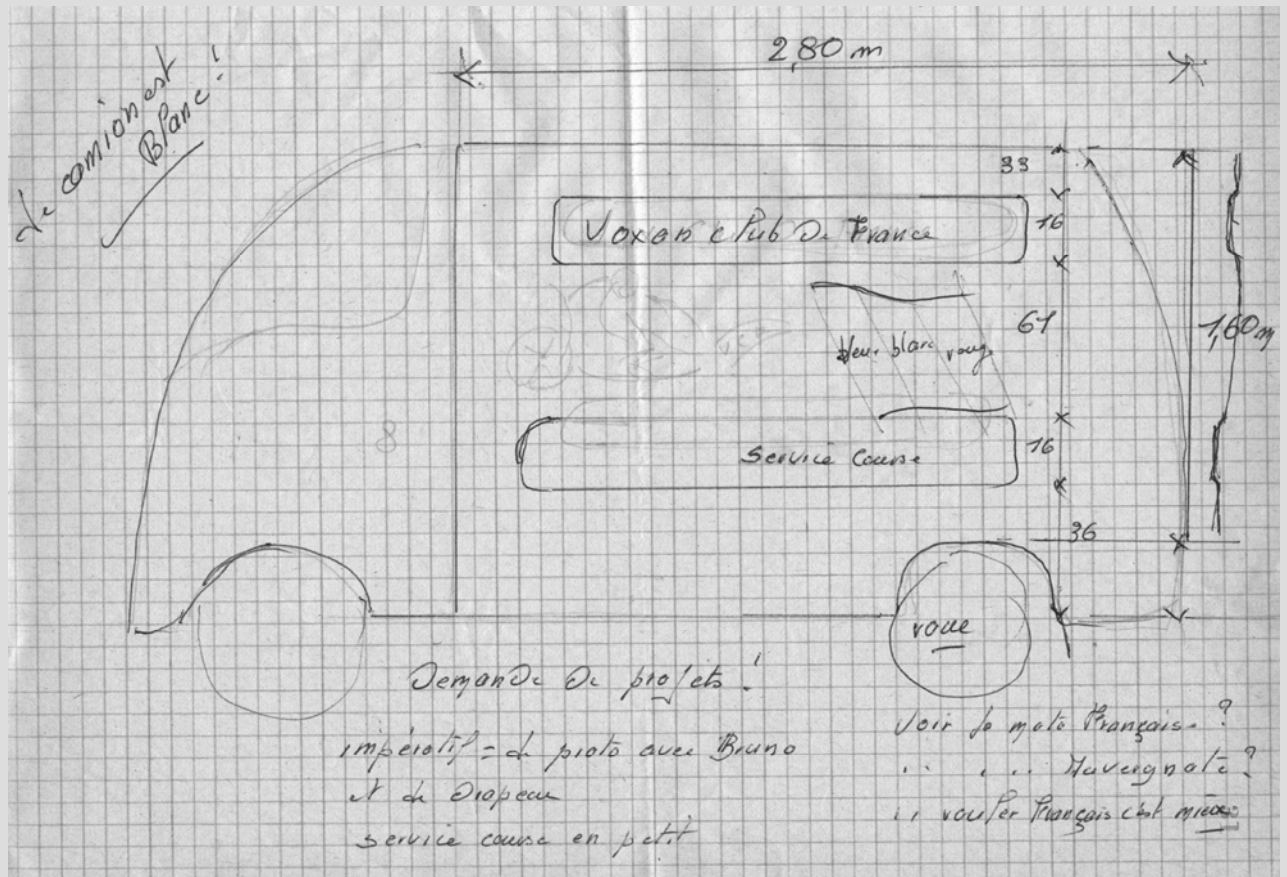 Le camion est
Blanc !
2,80 m
33
Voxan club De France
16
61
1,60 m
bleu blanc rouge
Service Course
16
36
roue
Demande De projets !
impératif = le proto avec Bruno
et le Drapeau
service course en petit
Voir la moto Française ?
" " " Auvergnate ?
" rouler Français c'est mieux